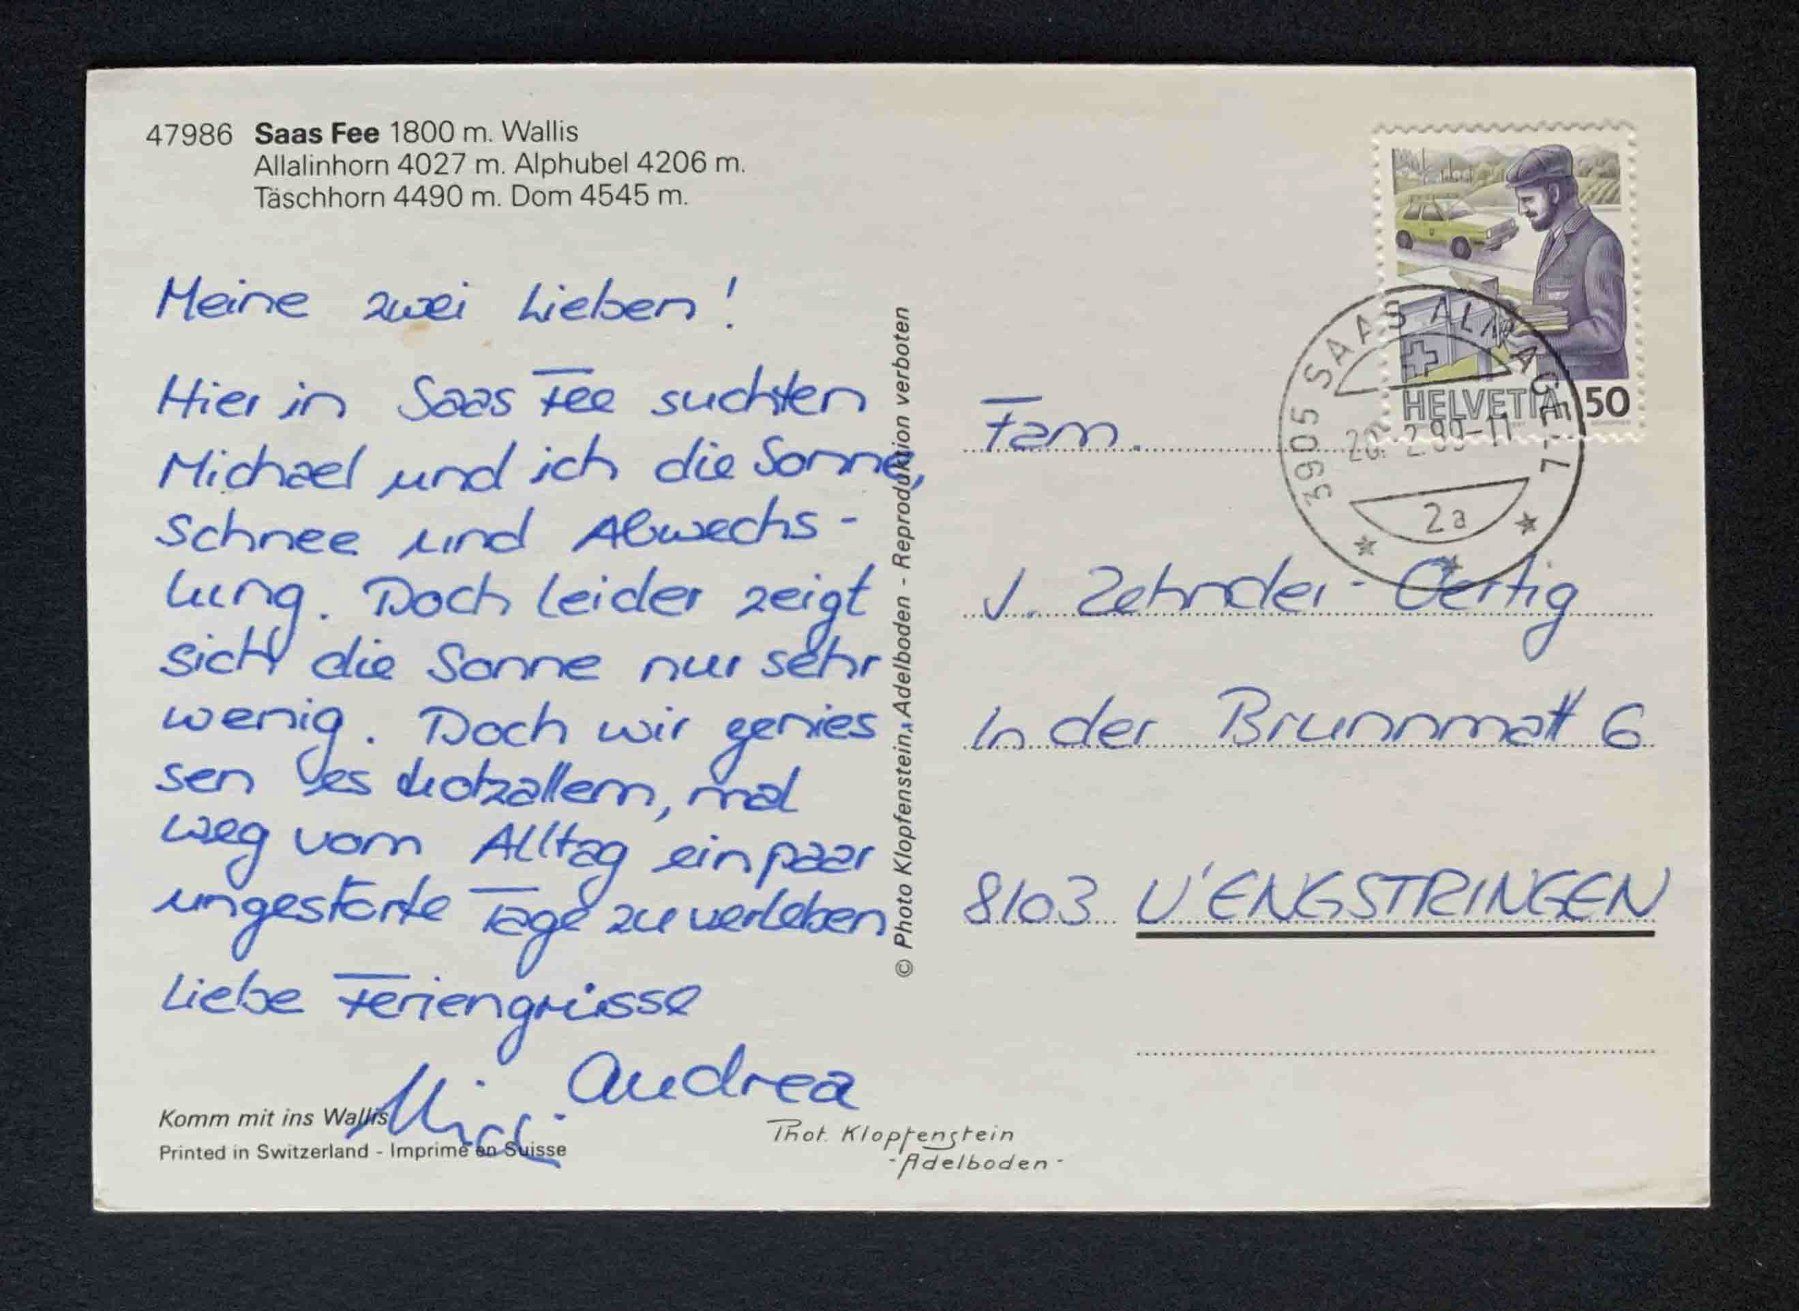 47986 Saas Fee 1800 m. Wallis
Allalinhorn 4027 m. Alphubel 4206 m.
Täschhorn 4490 m. Dom 4545 m.
Meine zwei Lieben!
Hier in Saas Fee suchten
Michael und ich die Sonne,
Schnee und Abwechs-
lung. Doch leider zeigt
sich die Sonne nur sehr
wenig. Doch wir genies
sen es trotzallem, mal
weg vom Alltag ein paar
ungestörte Tage zu verleben
Liebe Feriengrüsse
Andrea
Komm mit ins Wallis
Printed in Switzerland - Imprimé en Suisse
© Photo Klopfenstein, Adelboden - Reproduktion verboten
Phot. Klopfenstein
-Adelboden-
HELVETIA 50
3905 SAAS ALMAGELL
2a
Fam.
J. Zehnder-Oertig
In der Brunnmatt 6
8103 U'ENGSTRINGEN